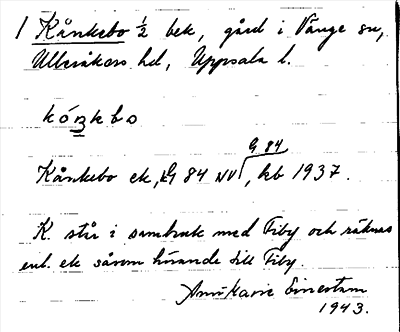 1 Kånkebo ½ bek, gård i Vänge sn,
Ulleråkers hd, Uppsala l.
kóŋkbo
G 84
Kånkebo ek, G 84 NV, kb 1937.
K. står i sambruk med Fiby och räknas
enl. ek såsom hörande till Fiby.
Ann-Marie Einerstam
1943.